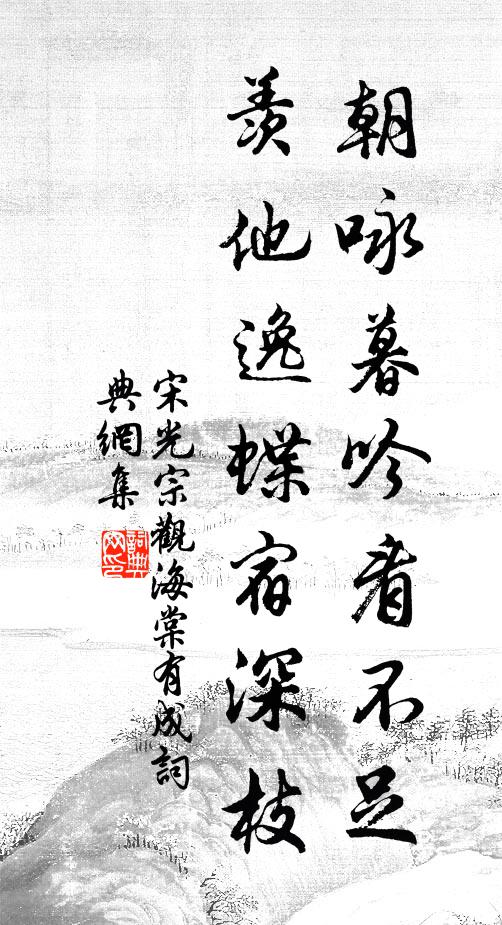 朝咏暮吟看不足
羡他逸蝶宿深枝
宋光宗觀海棠有成詞
典網集
詞典
网印